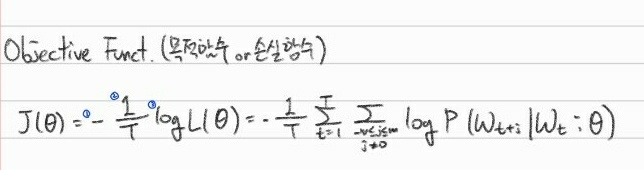 Objective Funct. (목적함수 or 손실함수)
J(θ) = ① - ② 1/T ③ log L(θ) = - 1/T Σ_{t=1}^{T} Σ_{-m≤j≤m, j≠0} log P(W_{t+j} | W_t ; θ)